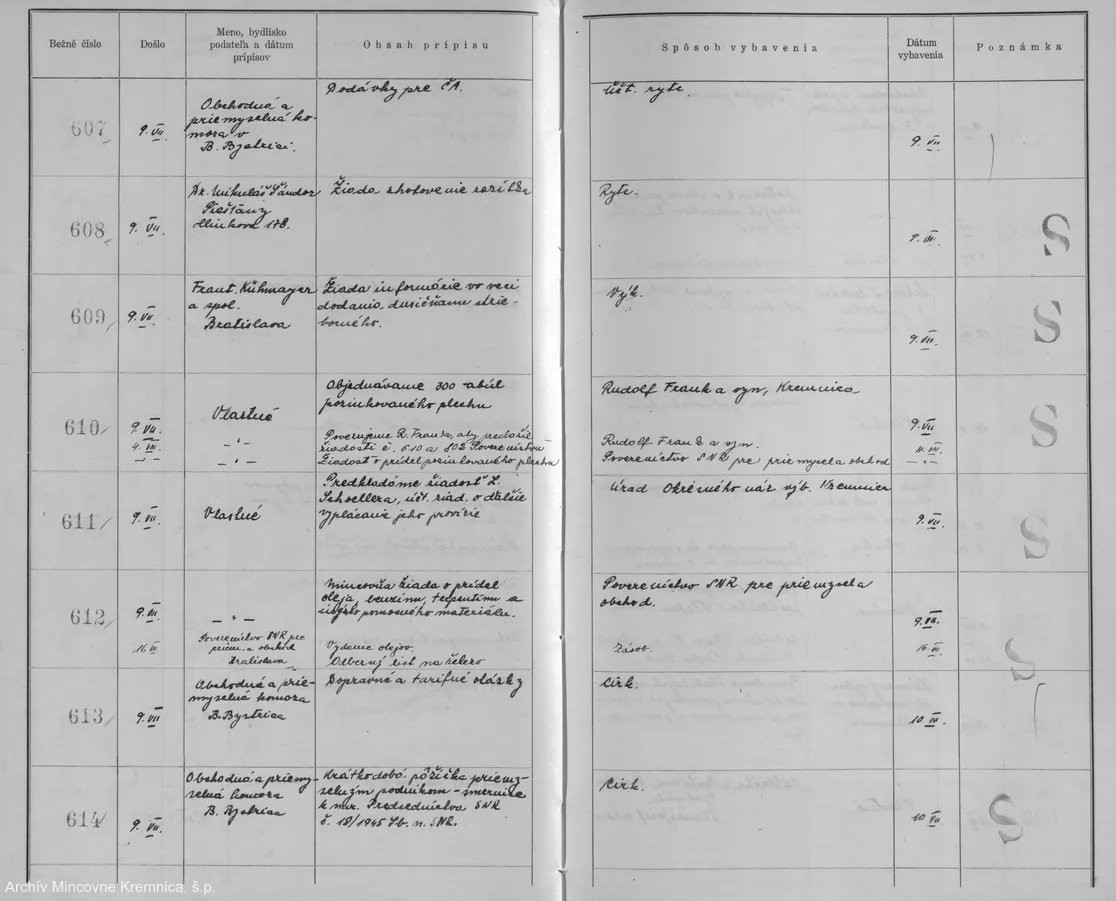 Bežné číslo
Došlo
Meno, bydlisko
podateľa a dátum
prípisov
Obsah prípisu
Spôsob vybavenia
Dátum
vybavenia
Poznámka
607
9. VII.
Obchodná a
priemyselná ko-
mora v
B. Bystrici.
Dodávky pre ČA.
Účt. ryte.
9. VII.
608
9. VII.
Dr. Mikuláš Šándor
Piešťany
Hlinkova 178.
Žiada zhotovenie razítka
Ryte.
9. VII.
S
609
9. VII.
Frant. Kühmayer
a spol.
Bratislava
Žiada informácie vo veci
dodania dusičňanu strie-
borného.
Výk.
9. VII.
S
610
9. VII.
Vlastné
Objednávame 300 tabúl
pozinkovaného plechu
Rudolf Frank a syn, Kremnica
9. VII.
4. VIII.
- " -
Poverujeme R. Franka, aby predložil
žiadosti č. 610 a 802 Povereníctvu
Rudolf Frank a syn.
- " -
- " -
Žiadosť o prídel pozinkovaného plechu
Povereníctvo SNR pre priemysel a obchod
- " -
S
611
9. VII.
Vlastné
Predkladáme žiadosť L.
Schoellera, účt. riad. o ďalšie
vyplácanie jeho provízie
Úrad Okresného nár. výb. Kremnica
9. VII.
S
612
9. VII.
- " -
Mincovňa žiada o prídel
oleja, benzínu, terpentínu a
pomocného materiálu.
Povereníctvo SNR pre priemysel a
obchod.
9. VII.
16. VII
Povereníctvo SNR pre
priem. a obchod
Bratislava
Vydanie olejov.
Odberný list na železo
Zásob.
16. VII.
S
613
9. VII
Obchodná a prie-
myselná komora
B. Bystrica
Dopravné a tarifné otázky
Cirk.
10 VII
614
9. VII.
Obchodná a priemy-
selná komora
B. Bystrica
Krátkodobá pôžička priemy-
selným podnikom - smernice
k nar. Predsedníctva SNR
č. 18/1945 Sb. n. SNR.
Cirk.
10 VII
S
Archív Mincovne Kremnica, š.p.